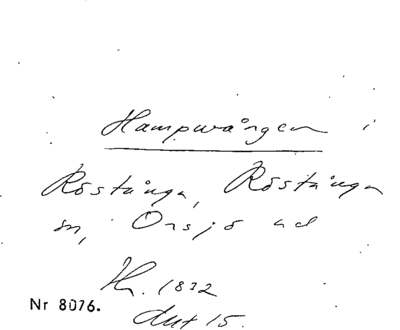 Hampvången i
Röstånga, Röstånga
sn, Onsjö hd
Hr. 1832
Nr 8076.
Aut 15.